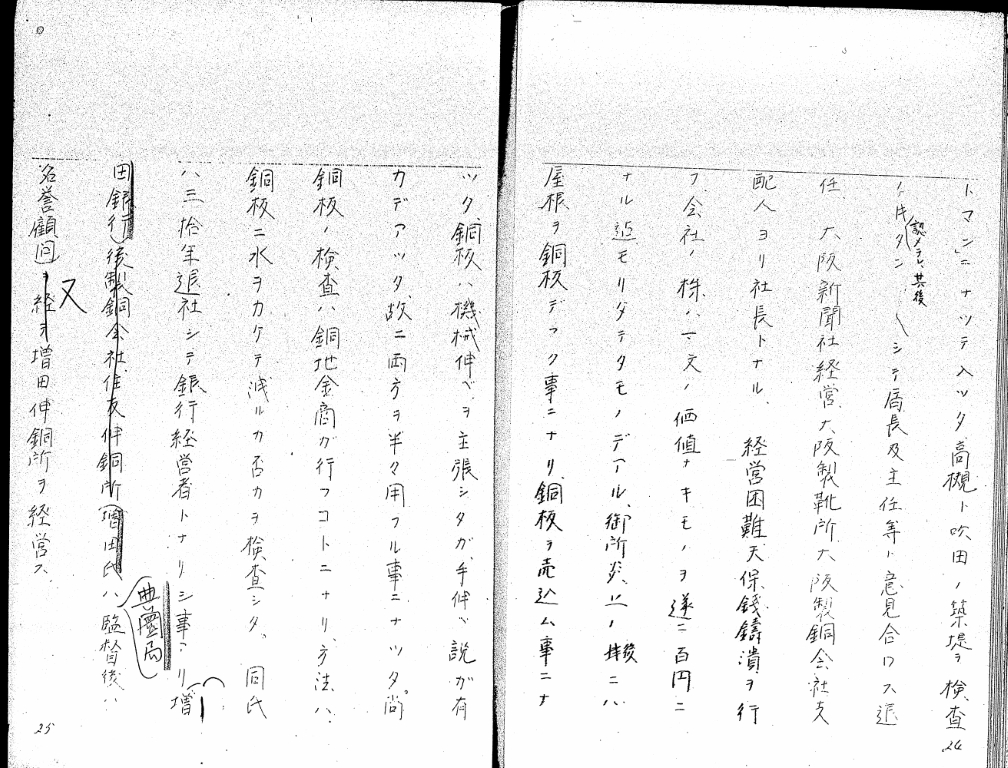 トマン」ニナツテ入ツタ高槻ト吹田ノ築堤ヲ検査
認メラレ、其後
シテ局長及主任等ト意見合ワス退
任 大阪新聞社経営大阪製靴所大阪製銅会社支
配人ヨリ社長トナル 経営困難天保銭鋳潰ヲ行
フ会社ノ株ハ一文ノ価値ナキモノヲ遂ニ百円ニ
ナル迠モリタテタモノデアル、御所炎上ノ後ニハ
屋根ヲ銅板デフク事ニナリ銅板ヲ売込ム事ニナ
24
ツタ、銅板ハ機械伸ベヲ主張シタガ、手伸ベ説ガ有
力デアツタ、故ニ両方ヲ半々用フル事ニナツタ尚
銅板ノ検査ハ銅地金商ガ行フコトニナリ、方法ハ、
銅板ニ水ヲカケテ洩ルカ否カヲ検査シタ、 同氏
ハ三拾年退社シテ銀行経営者トナリシ事アリ増
田銀行後製銅会社住友伸銅所増田氏ハ監督後ハ
名誉顧問ヲ経 又 増田伸銅所ヲ経営ス
25